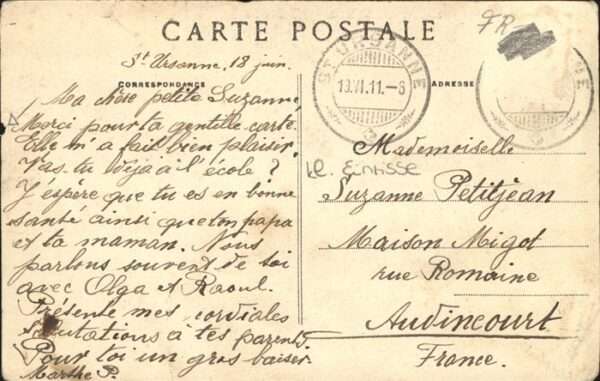 CARTE POSTALE
FR-
St Ursanne, 18 juin.
CORRESPONDANCE
ADRESSE
ST URSANNE
19.VI.11.-6
Ma chère petite Suzanne,
Merci pour ta gentille carte.
Elle m'a fait bien plaisir.
Vas-tu déjà à l'école ?
J'espère que tu es en bonne
santé ainsi que ton papa
et ta maman. Nous
parlons souvent de toi
avec Olga et Raoul.
Présente mes cordiales
salutations à tes parents.
Pour toi un gros baiser.
Marthe P.
Mademoiselle
Suzanne Petitjean
Maison Migot
rue Romaine
Audincourt
France.